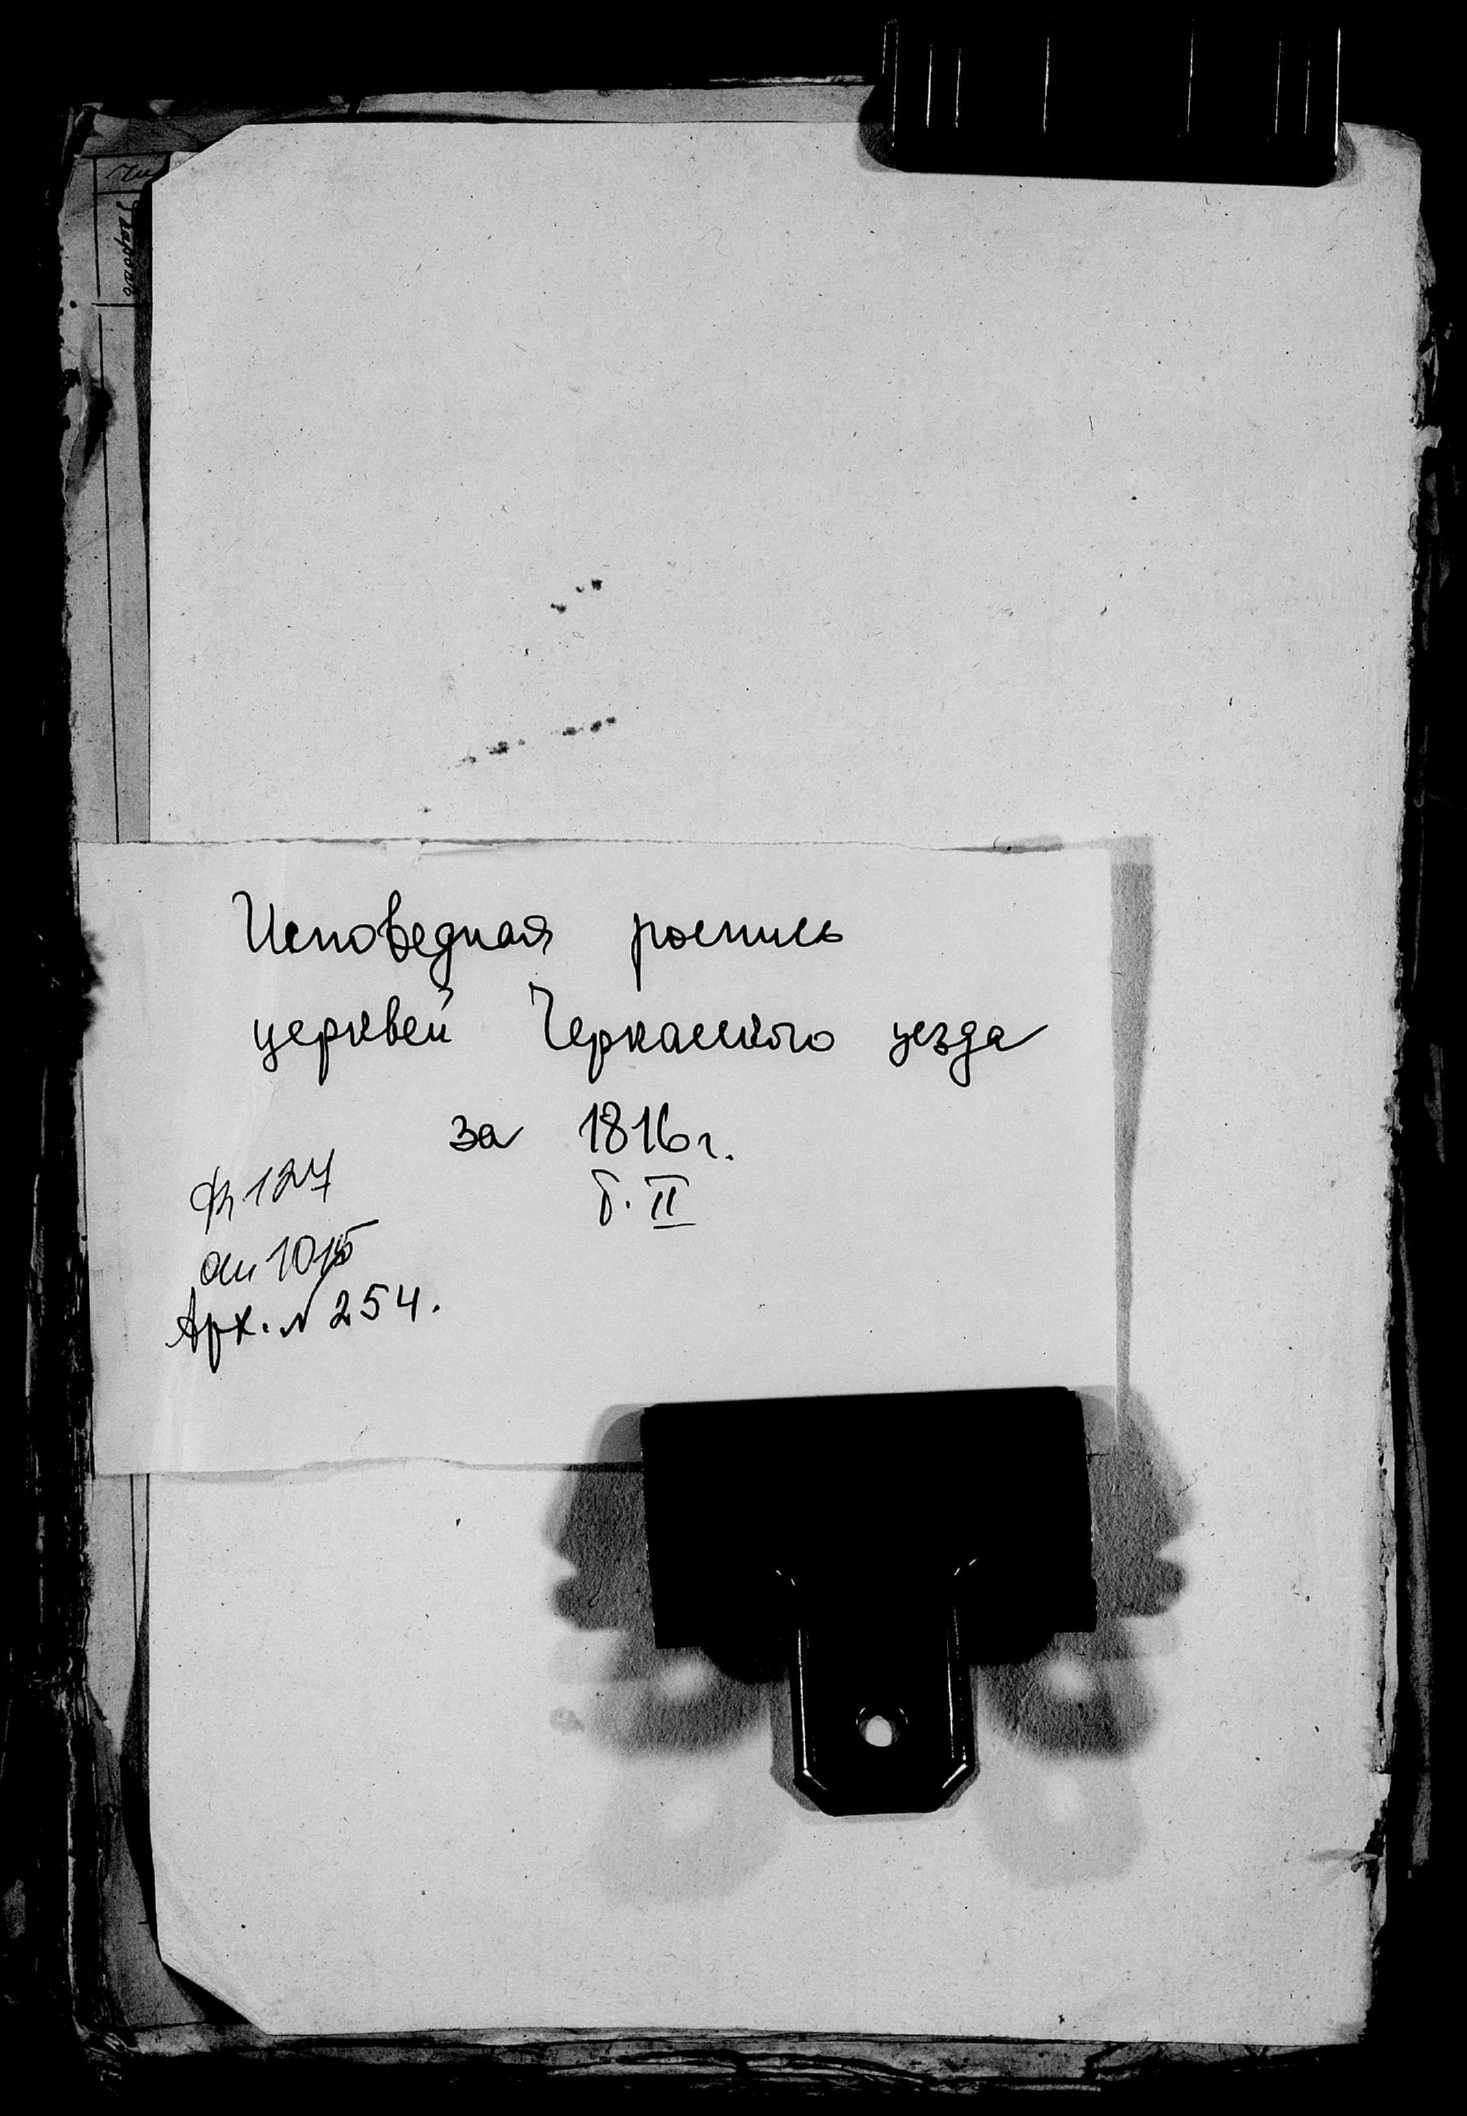 Исповедная роспись
церквей Черкасского уезда
за 1816 г.
т. II
Ф 127
оп 1015
Арх. №254.